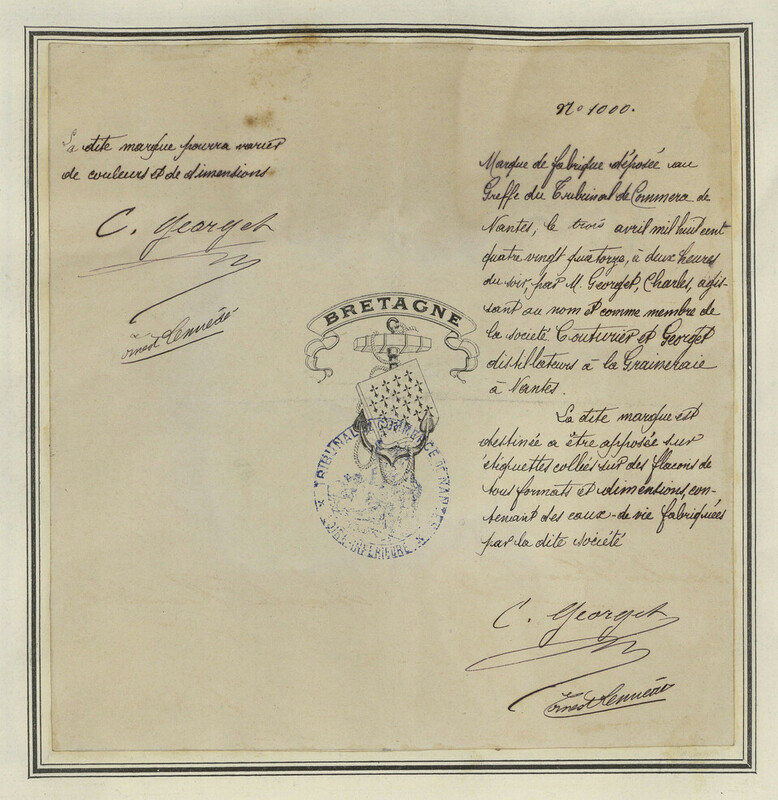 La dite marque pourra varier
de couleurs et de dimensions
C. Georget
Ernest
No 1000.
Marque de fabrique déposée au
Greffe du Tribunal de Commerce de
Nantes, le trois avril mil huit cent
quatre vingt quatorze, à deux heures
du soir par M. Georget, Charles, agis-
sant au nom et comme membre de
la société Couturier et Georget
distillateurs à la Graineraie
à Nantes.
La dite marque est
destinée a être apposée sur
étiquettes collées sur des flacons de
tous formats et dimensions, con-
tenant des eaux-de-vie fabriquées
par la dite société
C. Georget
Ernest
BRETAGNE
TRIBUNAL DE COMMERCE DE NANTES
LOIRE-INFÉRIEURE